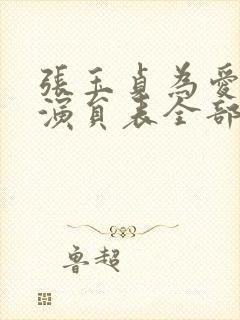 張玉貞為愛
演員表全部
魯超